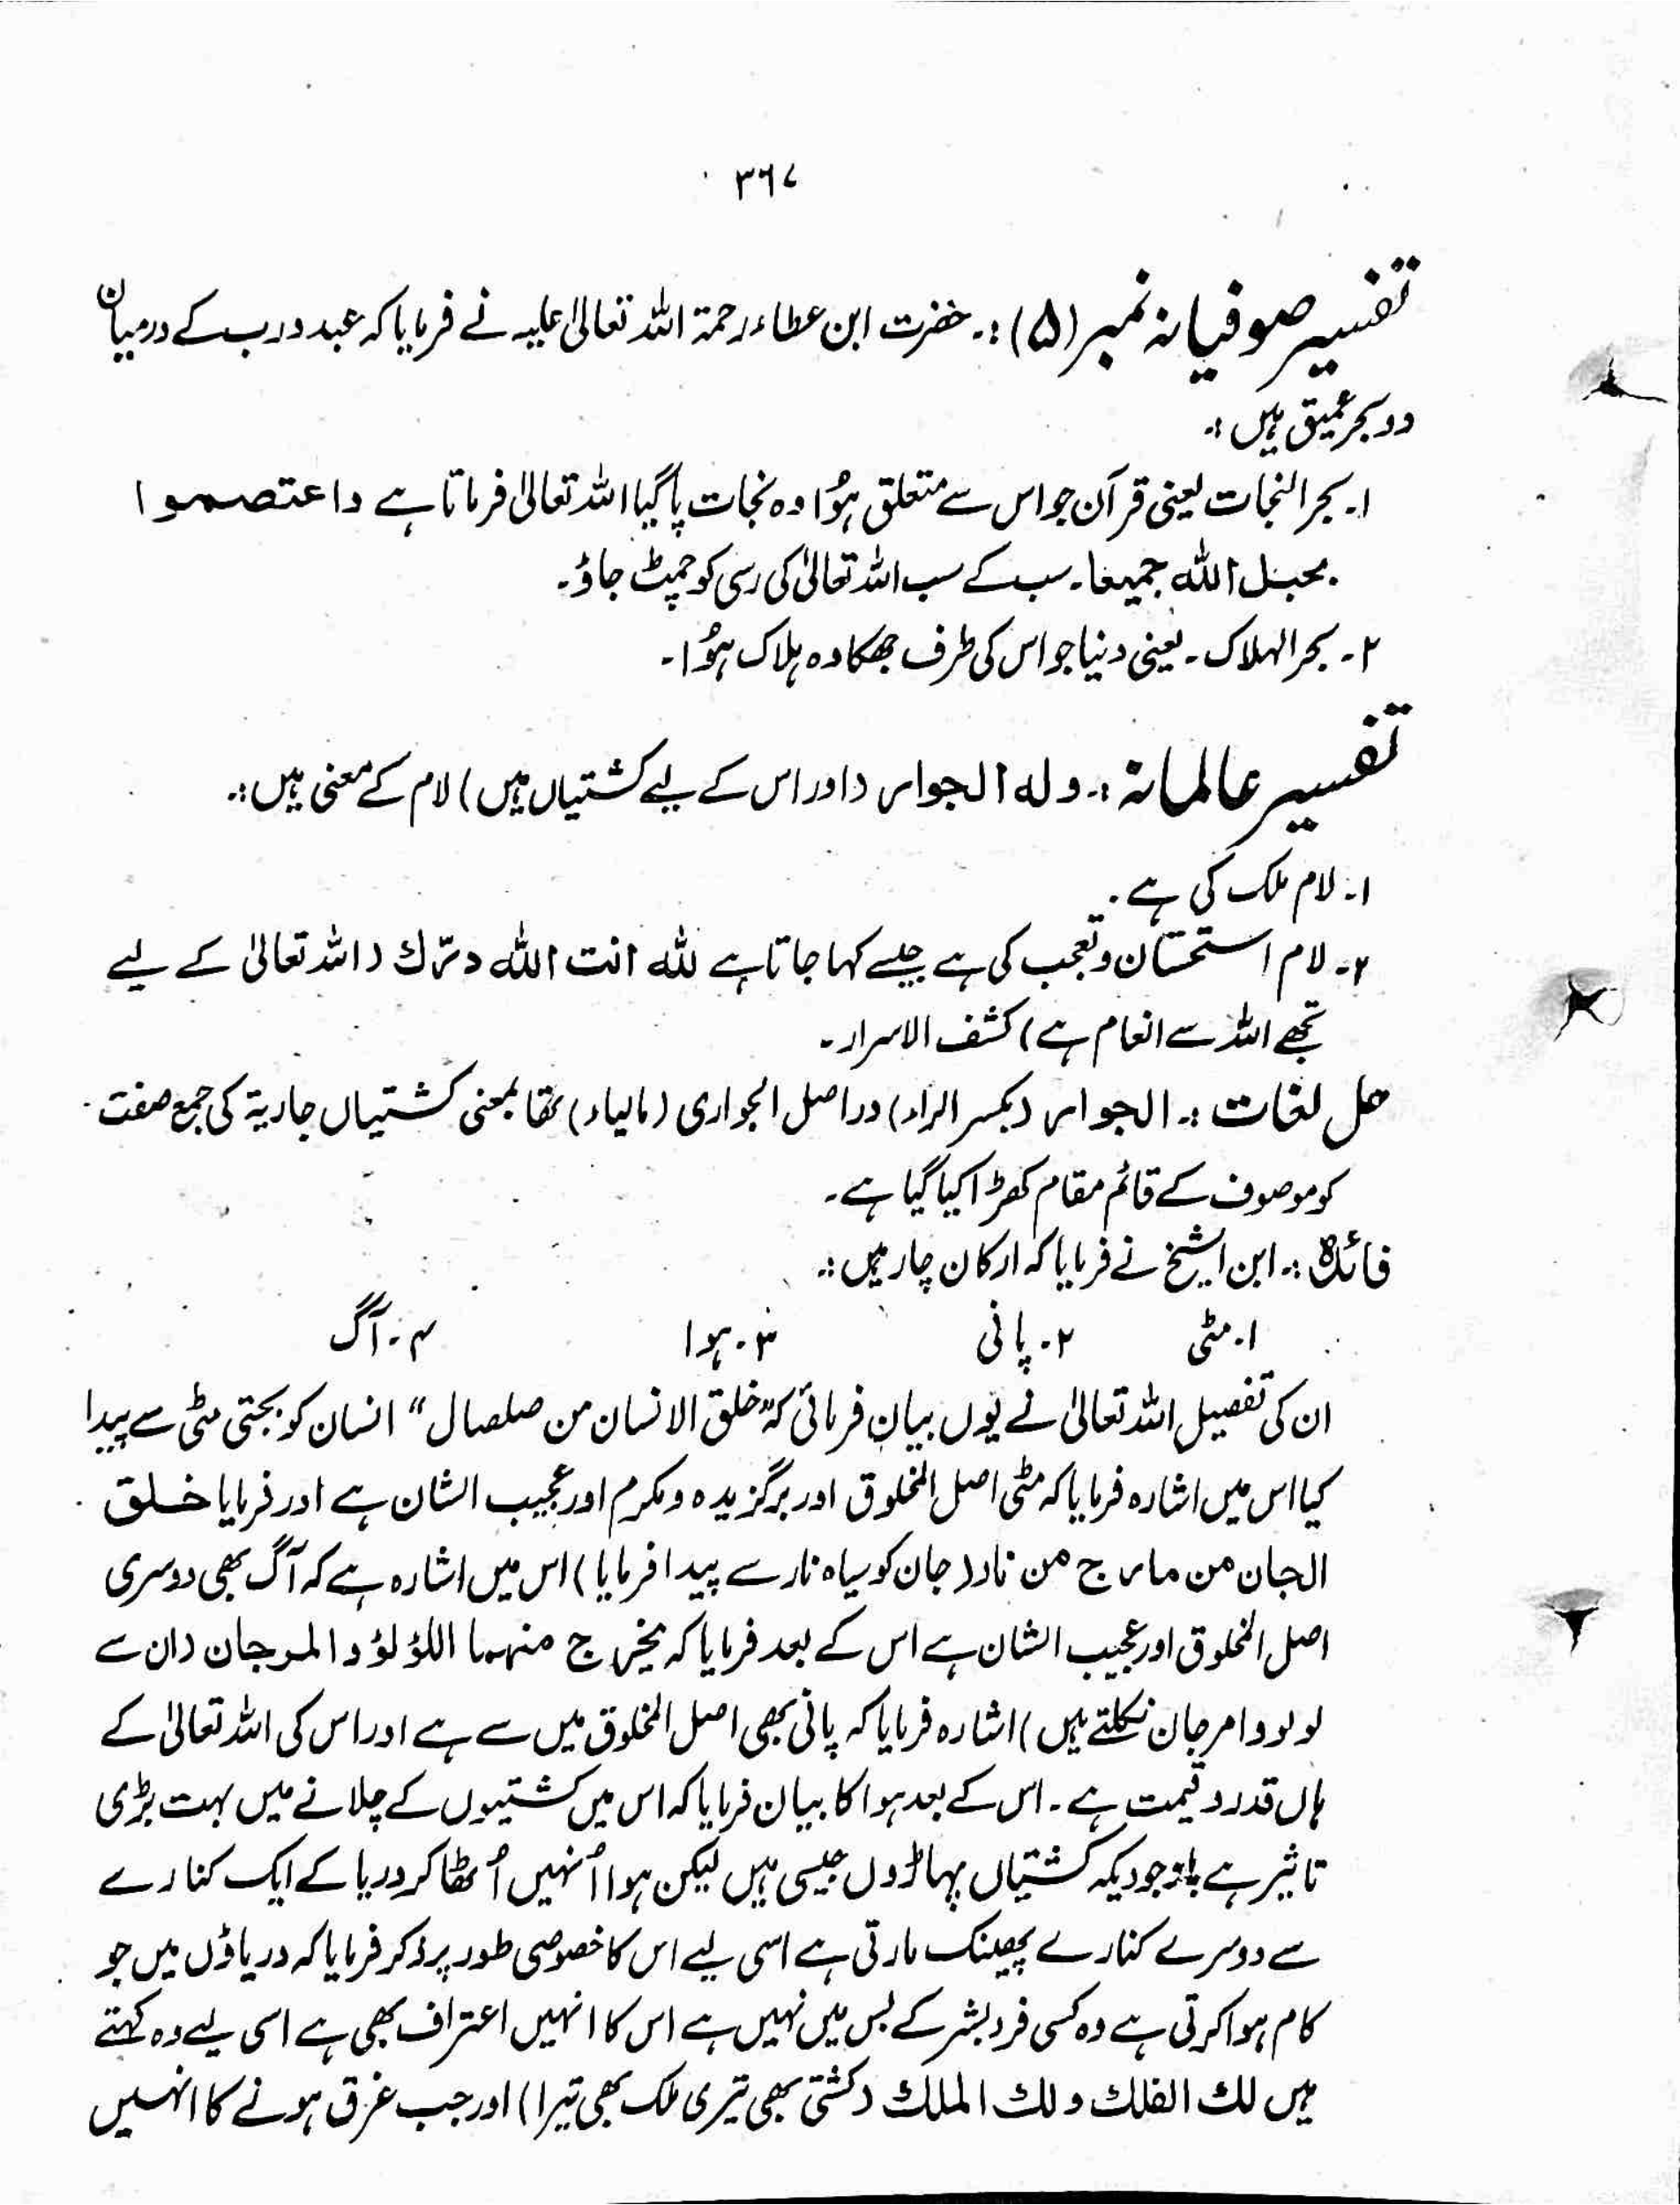 ۳۶۷
تفسیر صوفیانہ نمبر (۵) :۔ حضرت ابن عطاء رحمۃ اللہ تعالیٰ علیہ نے فرمایا کہ عبد ورب کے درمیان
دو بحر عمیق ہیں :۔
۱۔ بحر النجات یعنی قرآن جو اس سے متعلق ہوُا وہ نجات پا گیا اللہ تعالیٰ فرماتا ہے واعتصموا
بحبل اللہ جمیعا۔ سب کے سب اللہ تعالیٰ کی رسی کو چمٹ جاؤ۔
۲۔ بحر الہلاک۔ یعنی دنیا جو اس کی طرف جھکا وہ ہلاک ہوُا۔
تفسیر عالمانہ :۔ ولہ الجوار (اور اس کے لیے کشتیاں ہیں) لام کے معنی ہیں :۔
۱۔ لام ملک کی ہے۔
۲۔ لام استحسان و تعجب کی ہے جیسے کہا جاتا ہے للہ انت اللہ درّك (اللہ تعالیٰ کے لیے
تجھے اللہ سے انعام ہے) کشف الاسرار۔
حل لغات :۔ الجوار (بکسر الراء) دراصل الجواری (بالیاء) تھا بمعنی کشتیاں جاریۃ کی جمع صفت
کو موصوف کے قائم مقام کھڑا کیا گیا ہے۔
فائدہ :۔ ابن الشیخ نے فرمایا کہ ارکان چار ہیں :۔
۱۔ مٹی ۲۔ پانی ۳۔ ہوا ۴۔ آگ
ان کی تفصیل اللہ تعالیٰ نے یوں بیان فرمائی کہ ”خلق الانسان من صلصال“ انسان کو بجتی مٹی سے پیدا
کیا اس میں اشارہ فرمایا کہ مٹی اصل المخلوق اور برگزیدہ و مکرم اور عجیب الشان ہے اور فرمایا خلق
الجان من مارج من نار (جان کو سیاہ نار سے پیدا فرمایا) اس میں اشارہ ہے کہ آگ بھی دوسری
اصل المخلوق اور عجیب الشان ہے اس کے بعد فرمایا کہ یخرج منہما اللؤلؤ والمرجان (ان سے
لولو وامرجان نکلتے ہیں) اشارہ فرمایا کہ پانی بھی اصل المخلوق میں سے ہے اور اس کی اللہ تعالیٰ کے
ہاں قدر و قیمت ہے۔ اس کے بعد ہوا کا بیان فرمایا کہ اس میں کشتیوں کے چلانے میں بہت بڑی
تاثیر ہے باوجودیکہ کشتیاں پہاڑوں جیسی ہیں لیکن ہوا اُنہیں اُٹھا کر دریا کے ایک کنارے
سے دوسرے کنارے پھینک مارتی ہے اسی لیے اس کا خصوصی طور پر ذکر فرمایا کہ دریاؤں میں جو
کام ہوا کرتی ہے وہ کسی فرد بشر کے بس میں نہیں ہے اس کا انہیں اعتراف بھی ہے اسی لیے وہ کہتے
ہیں لك الفلك ولك الملك (کشتی بھی تیری ملک بھی تیرا) اور جب غرق ہونے کا انہیں